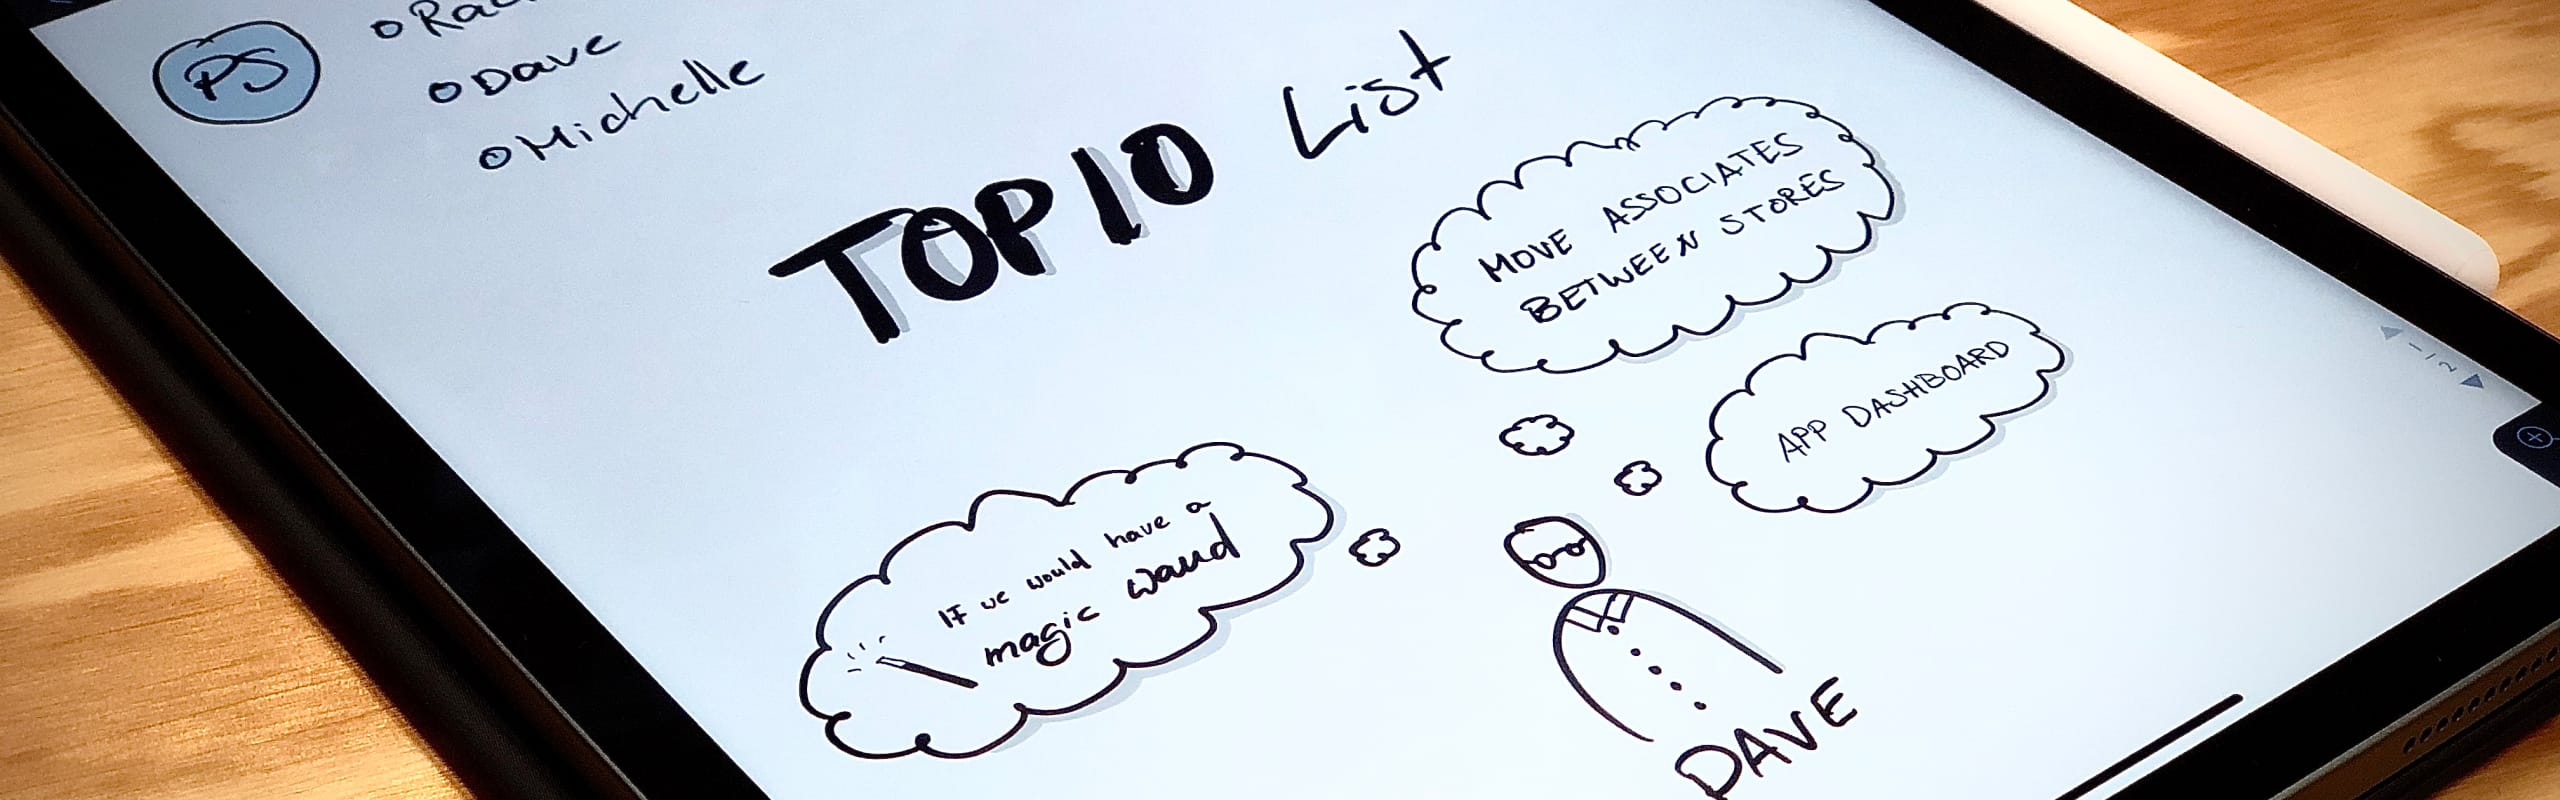 PS
Dave
Michelle
TOP 10 List
MOVE ASSOCIATES
BETWEEN STORES
APP DASHBOARD
If we would have a
magic wand
DAVE
1/2